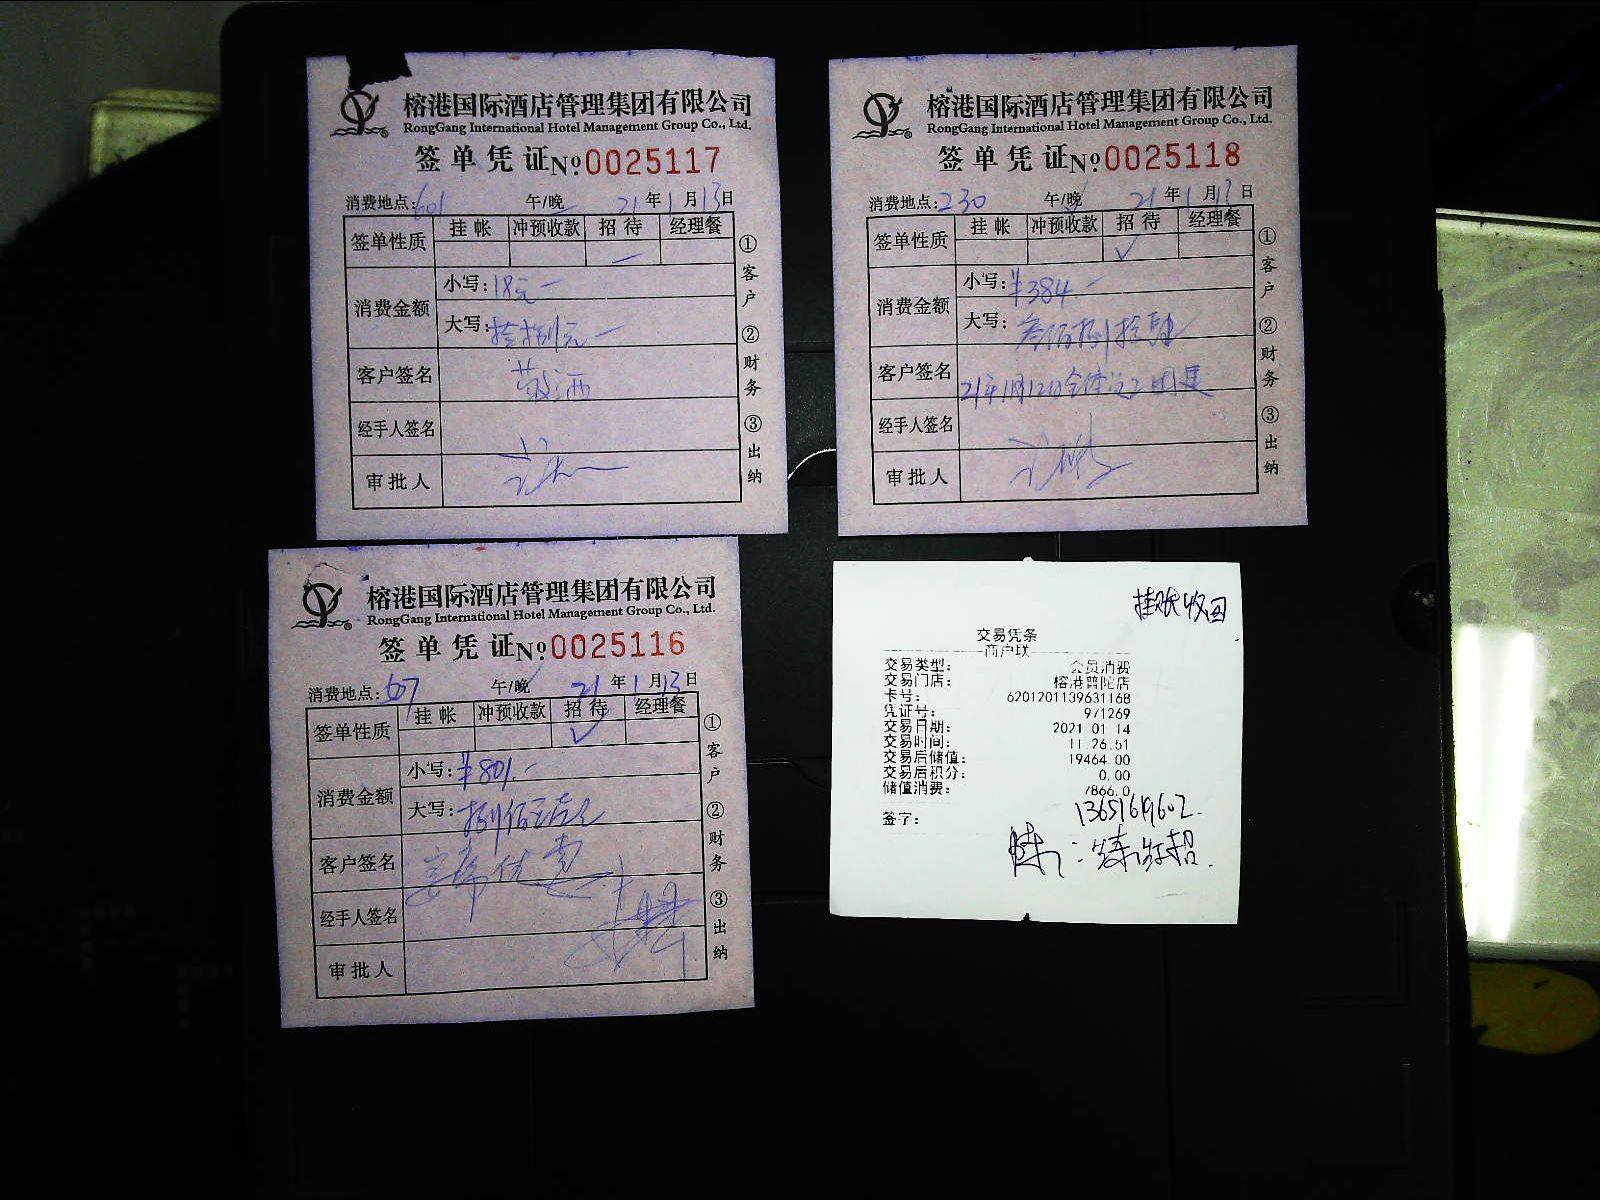 榕港国际酒店管理集团有限公司
RongGang International Hotel Management Group Co., Ltd.
签单凭证 No: 0025117
消费地点: 601 午/晚 21年1月13日
签单性质 挂帐 冲预收款 招待 经理餐
消费金额 小写: 18元
大写: 拾捌元
客户签名
经手人签名
审批人
①客户 ②财务 ③出纳
榕港国际酒店管理集团有限公司
RongGang International Hotel Management Group Co., Ltd.
签单凭证 No: 0025118
消费地点: 230 午/晚 21年1月13日
签单性质 挂帐 冲预收款 招待 经理餐
消费金额 小写: ¥384
大写: 叁佰捌拾肆
客户签名 21年1月12日全体员工团建
经手人签名
审批人
①客户 ②财务 ③出纳
榕港国际酒店管理集团有限公司
RongGang International Hotel Management Group Co., Ltd.
签单凭证 No: 0025116
消费地点: 607 午/晚 21年1月13日
签单性质 挂帐 冲预收款 招待 经理餐
消费金额 小写: ¥801.
大写:
客户签名 宴席优惠
经手人签名
审批人
①客户 ②财务 ③出纳
挂账收回
交易凭条
商户联
交易类型: 会员消费
交易门店: 榕港普陀店
卡号: 6201201139631168
凭证号: 971269
交易日期: 2021 01 14
交易时间: 11.26.51
交易后储值: 19464.00
交易后积分: 0.00
储值消费: 7866.0
签字: